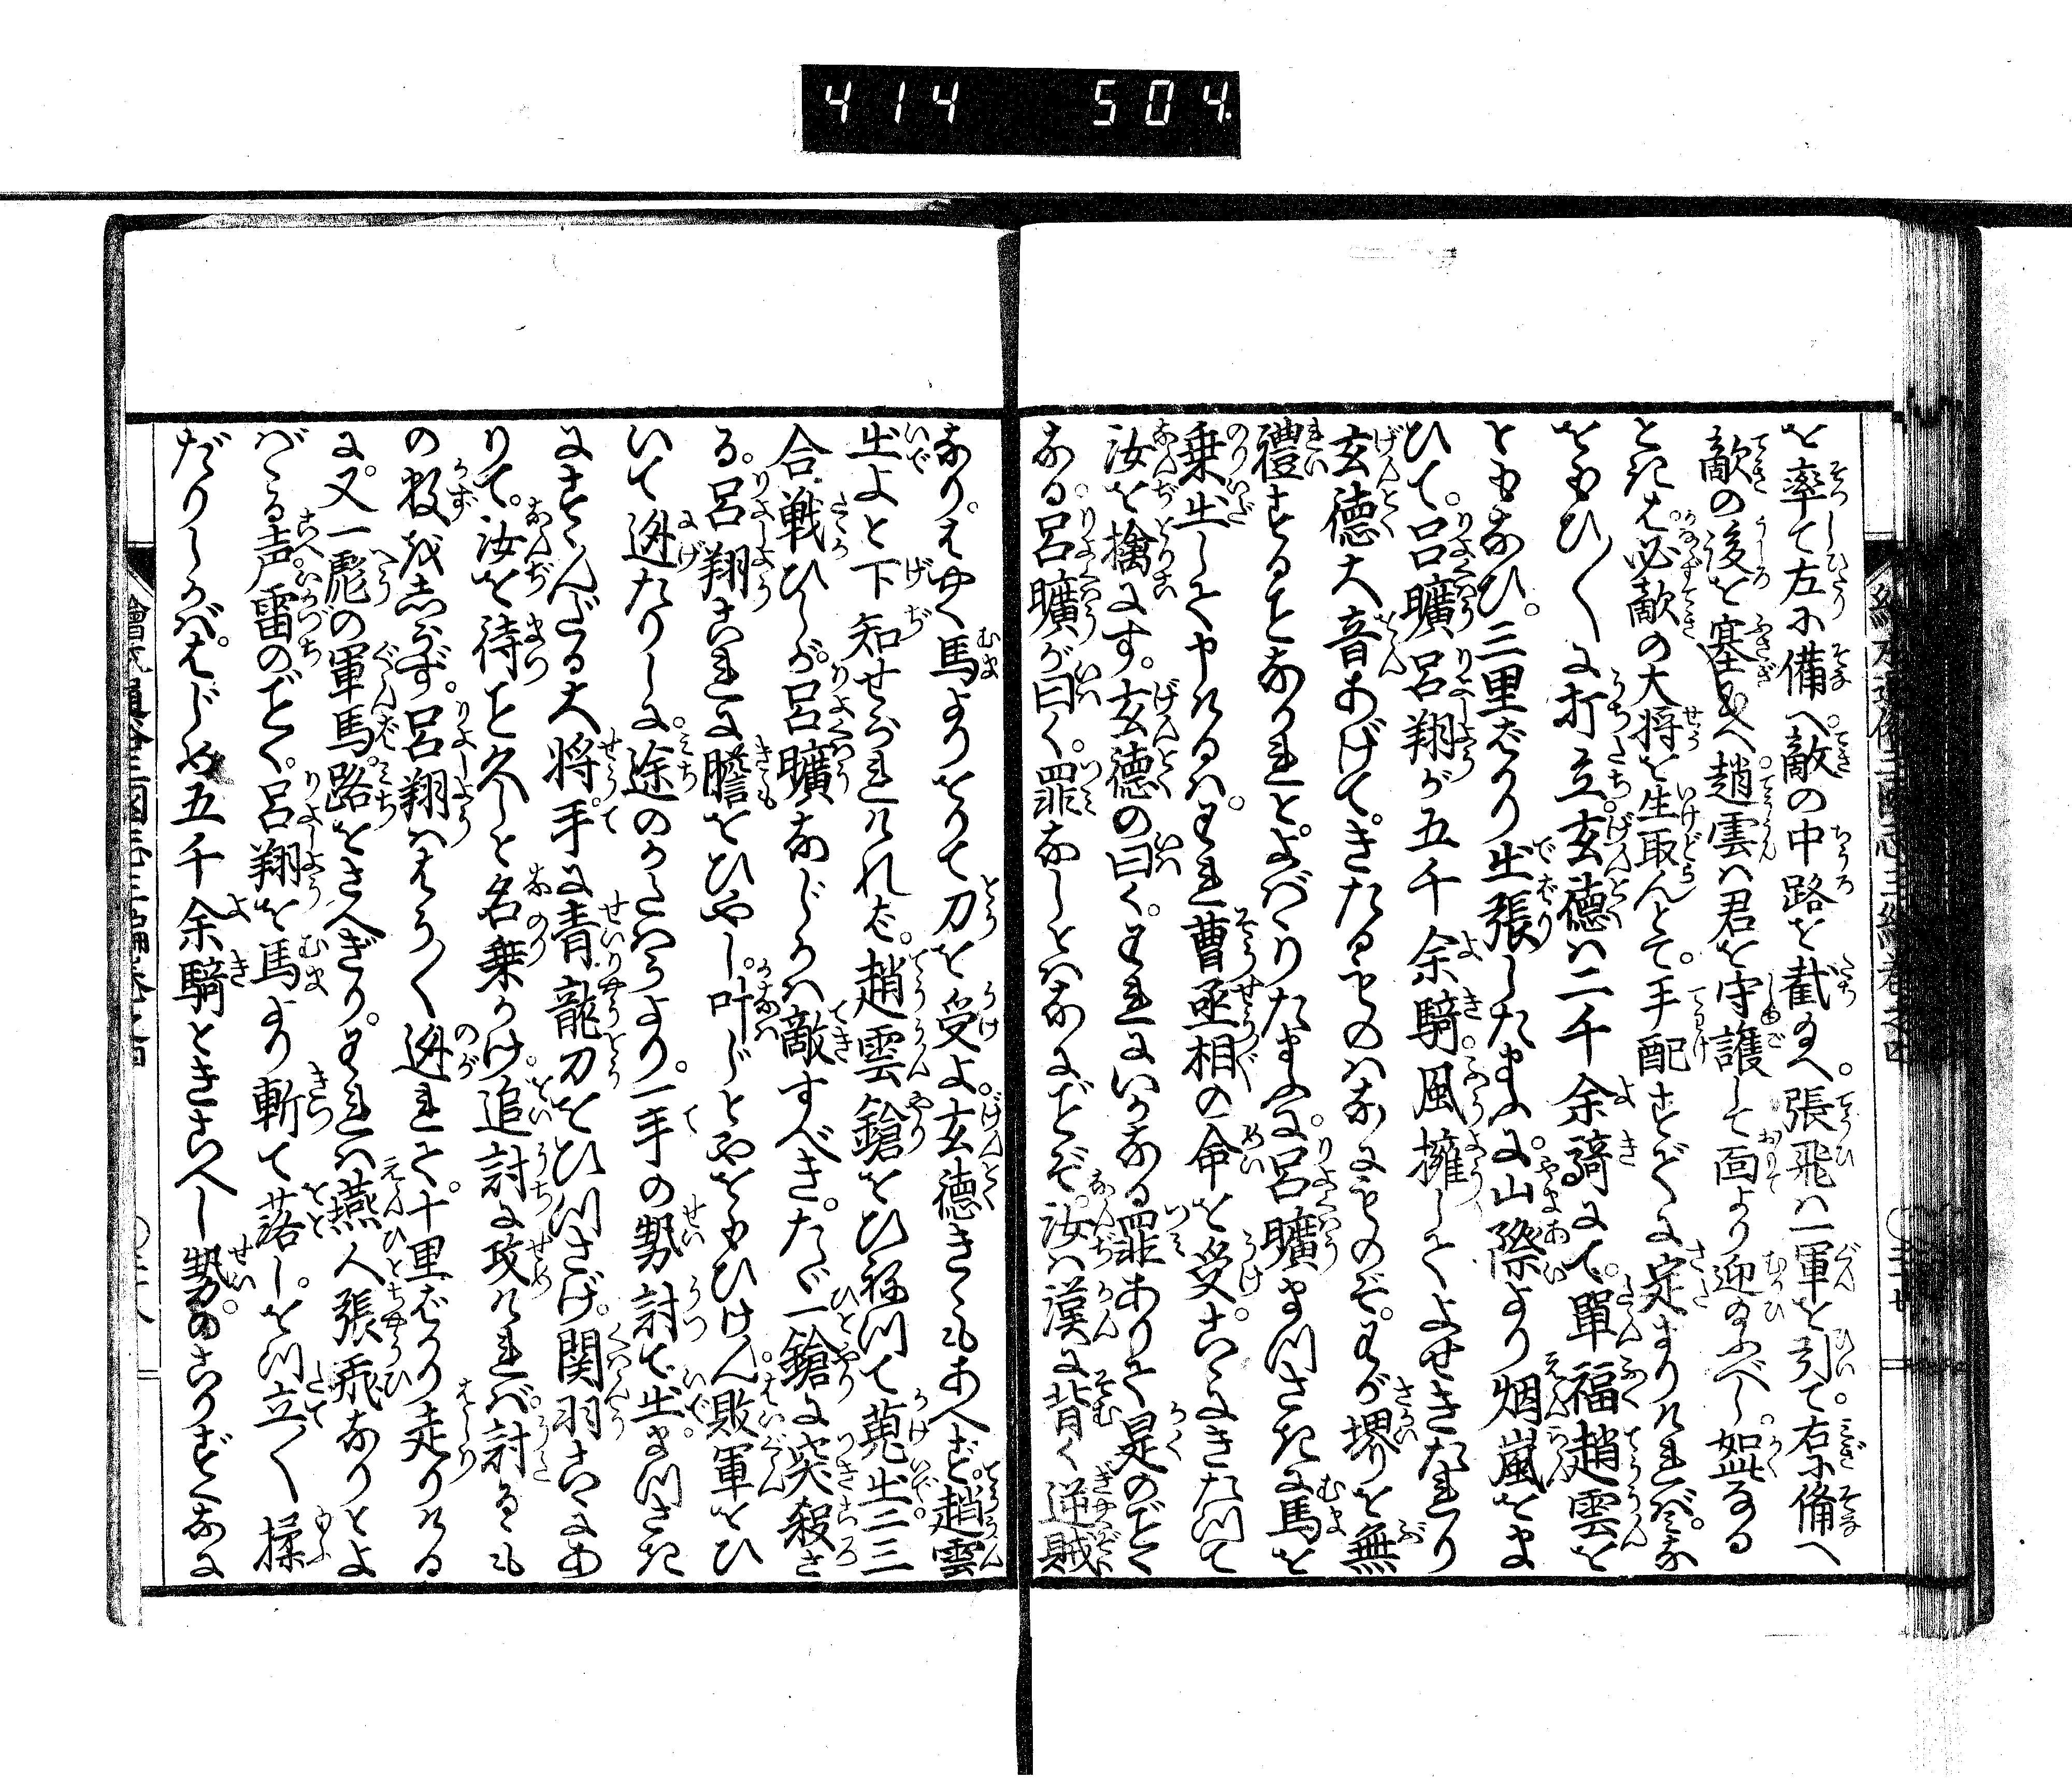 414 504
を率て左に備へ。敵の中路を截給へ。張飛は一軍を引て。右に備へ
敵の後を塞給へ。趙雲は君を守護して面より迎給ふべし。如此なる
ときは。必敵の大将を生取んとて。手配すでに定まりければ。みな
をもひ〳〵に打立。玄徳は二千余騎にて。單福趙雲を
ともなひ。三里ばかり出張したまふに。山際より烟嵐をま
ひて。呂曠呂翔が五千余騎。風擁してよせきたれり
玄徳大音あげて。きたるものはなにものぞ。わが堺を無
禮することなかれと。よばゝりたまふに。呂曠まつさきに馬を
乗出して申けるは。われ曹丞相の命を受。こゝにきたつて
汝を擒にす。玄徳の曰く。われにいかなる罪ありて是のごとく
なる。呂曠が曰く。罪なしとはなにごとぞ。汝は漢に背く逆賊
なり。はやく馬よりをりて刀を受よ。玄徳きゝもあへず。趙雲
出よと下知せられければ。趙雲鎗をひねつて蒐出。二三
合戦ひしが。呂曠なじかは敵すべき。たゞ一鎗に突殺さ
る。呂翔これに膽をひやし。叶じとやをもひけん。敗軍をひ
いて迯たりしに。途のかたはらより。一手の勢討て出。まつさき
にすゝんだる大将。手に青龍刀をひつさげ。関羽こゝにあ
りて。汝を待こと久しと名乗かけ。追討に攻ければ。討るゝも
の数をしらず。呂翔はからく迯れて。十里ばかり走りける
に。又一彪の軍馬。路をさへぎり。われは燕人張飛なりとよ
ばゝる声。雷のごとく。呂翔を馬より斬て落し。をつ立〳〵揉
だりしかば。はじめ五千余騎ときこへし勢。のこりずくなに